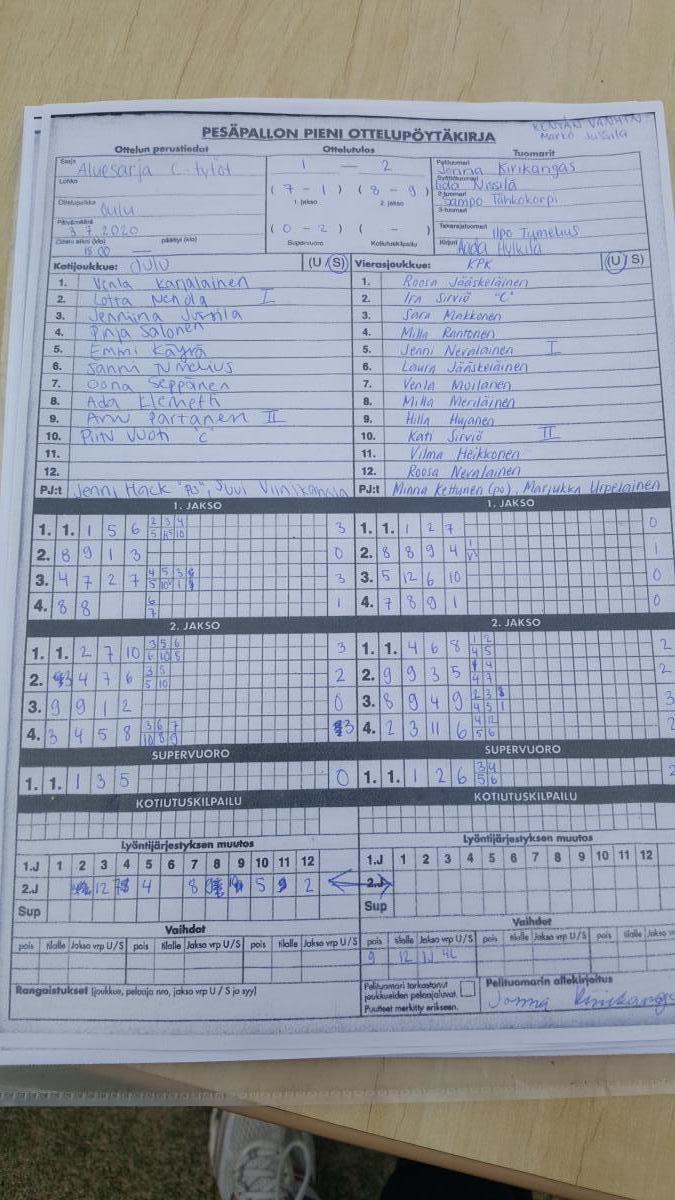 KENTÄN VANHIN
Marko Jussila
PESÄPALLON PIENI OTTELUPÖYTÄKIRJA
Ottelun perustiedot Ottelutulos Tuomarit
Sarja Aluesarja C-tytöt
Lohko
Ottelupaikka Oulu
Päivämäärä 3.7.2020
Ottelu alkoi (klo) 18.00 päättyi (klo)
1 — 2
(7 - 1) (8 - 9)
1. jakso 2. jakso
(0 - 2) ( - )
Supervuoro Kotiutuskilpailu
Pelituomari Jonna Kirikangas
Syöttötuomari Iida Nissilä
2-tuomari Sampo Tähkökorpi
3-tuomari
Takarajatuomari Ilpo Tumelius
Kirjuri Aada Hylkilä
Kotijoukkue: Oulu (U / S) Vierasjoukkue: KPK (U / S)
1. Venla Karjalainen 1. Roosa Jääskeläinen
2. Lotta I 2. Ira Sirviö "C"
3. Jenniina Jussila 3. Sara Makkonen
4. Pinja Salonen 4. Milla Rantonen
5. Emmi Käyrä 5. Jenni Nevalainen I
6. Sanni Tumelius 6. Laura Jääskeläinen
7. Oona Seppänen 7. Venla Moilanen
8. Ada Klemetti 8. Milla Meriläinen
9. Anni Partanen II 9. Hilla Hujanen
10. "C" 10. Kati Sirviö II
11. 11. Vilma Heikkonen
12. 12. Roosa Nevalainen
PJ:t Jenni Hack "PJ", Suvi PJ:t Minna Kettunen (pj), Marjukka Urpelainen
1. JAKSO 1. JAKSO
1. 1. 1 5 6 3 1. 1. 1 2 7 0
2. 8 9 1 3 0 2. 8 8 9 4 1
3. 4 7 2 7 3 3. 5 12 6 10 0
4. 8 8 1 4. 7 8 9 1 0
2. JAKSO 2. JAKSO
1. 1. 2 7 10 3 1. 1. 4 6 8 2
2. 4 7 6 2 2. 9 9 3 5 2
3. 9 9 1 2 0 3. 8 9 4 9 3
4. 3 4 5 8 3 4. 2 3 11 6 2
SUPERVUORO SUPERVUORO
1. 1. 1 3 5 0 1. 1. 1 2 6 2
KOTIUTUSKILPAILU KOTIUTUSKILPAILU
Lyöntijärjestyksen muutos Lyöntijärjestyksen muutos
1.J 1 2 3 4 5 6 7 8 9 10 11 12 1.J 1 2 3 4 5 6 7 8 9 10 11 12
2.J 12 4 8 5 9 2 2.J
Sup Sup
Vaihdot Vaihdot
pois tilalle Jakso vrp U/S pois tilalle Jakso vrp U/S pois tilalle Jakso vrp U/S pois tilalle Jakso vrp U/S pois tilalle Jakso vrp U/S pois tilalle Jakso
9 12
Rangaistukset (joukkue, pelaaja nro, jakso vrp U / S ja syy)
Pelituomari tarkastanut
joukkueiden pelaajaluvat.
Puutteet merkitty erikseen.
Pelituomarin allekirjoitus
Jonna Kirikangas